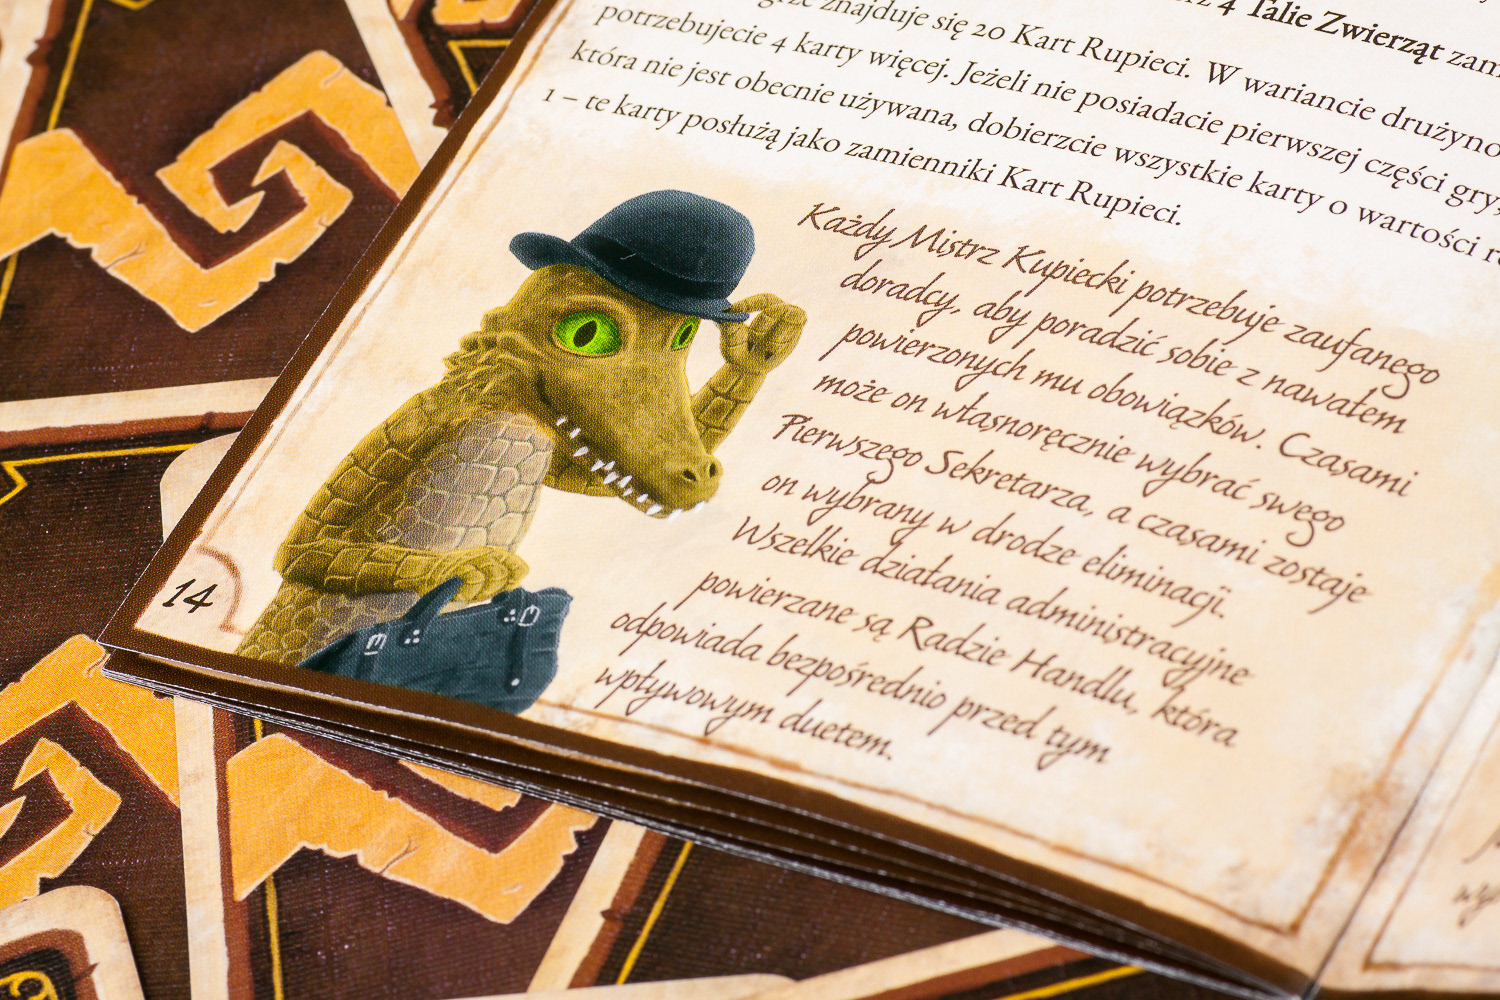 4 Talie Zwierząt
znajduje się 20 Kart Rupieci. W wariancie
potrzebujecie 4 karty więcej. Jeżeli nie posiadacie pierwszej części gry,
która nie jest obecnie używana, dobierzcie wszystkie karty o wartości
1 – te karty posłużą jako zamienniki Kart Rupieci.
Każdy Mistrz Kupiecki potrzebuje zaufanego
doradcy, aby poradzić sobie z nawałem
powierzonych mu obowiązków. Czasami
może on własnoręcznie wybrać swego
Pierwszego Sekretarza, a czasami zostaje
on wybrany w drodze eliminacji.
Wszelkie działania administracyjne
powierzane są Radzie Handlu, która
odpowiada bezpośrednio przed tym
wpływowym duetem.
14